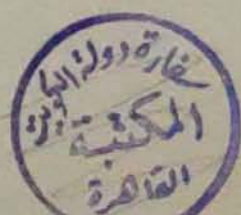 سفارة دولة الكويت
المكتبة
القاهرة